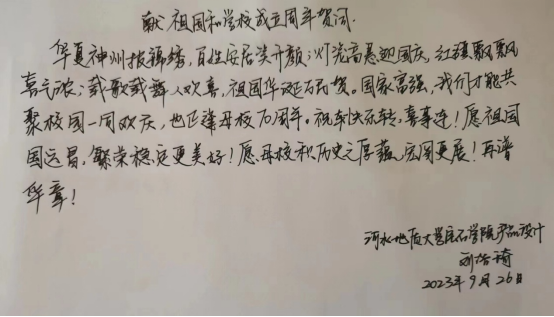 献祖国和学校成立周年贺词.
华夏神州报锦绣，百姓安居笑开颜；灯光高悬迎国庆，红旗飘飘
喜气浓；载歌载舞人欢喜，祖国华诞万民贺。国家富强，我们才能共
聚校园一同欢庆，也正逢母校70周年。祝刹快乐转，喜事连！愿祖国
国运昌，繁荣稳定更美好！愿母校积历史之厚蕴，宏图更展！再谱
华章！
河北地质大学宝石学院产品设计
刘
2023年9月26日